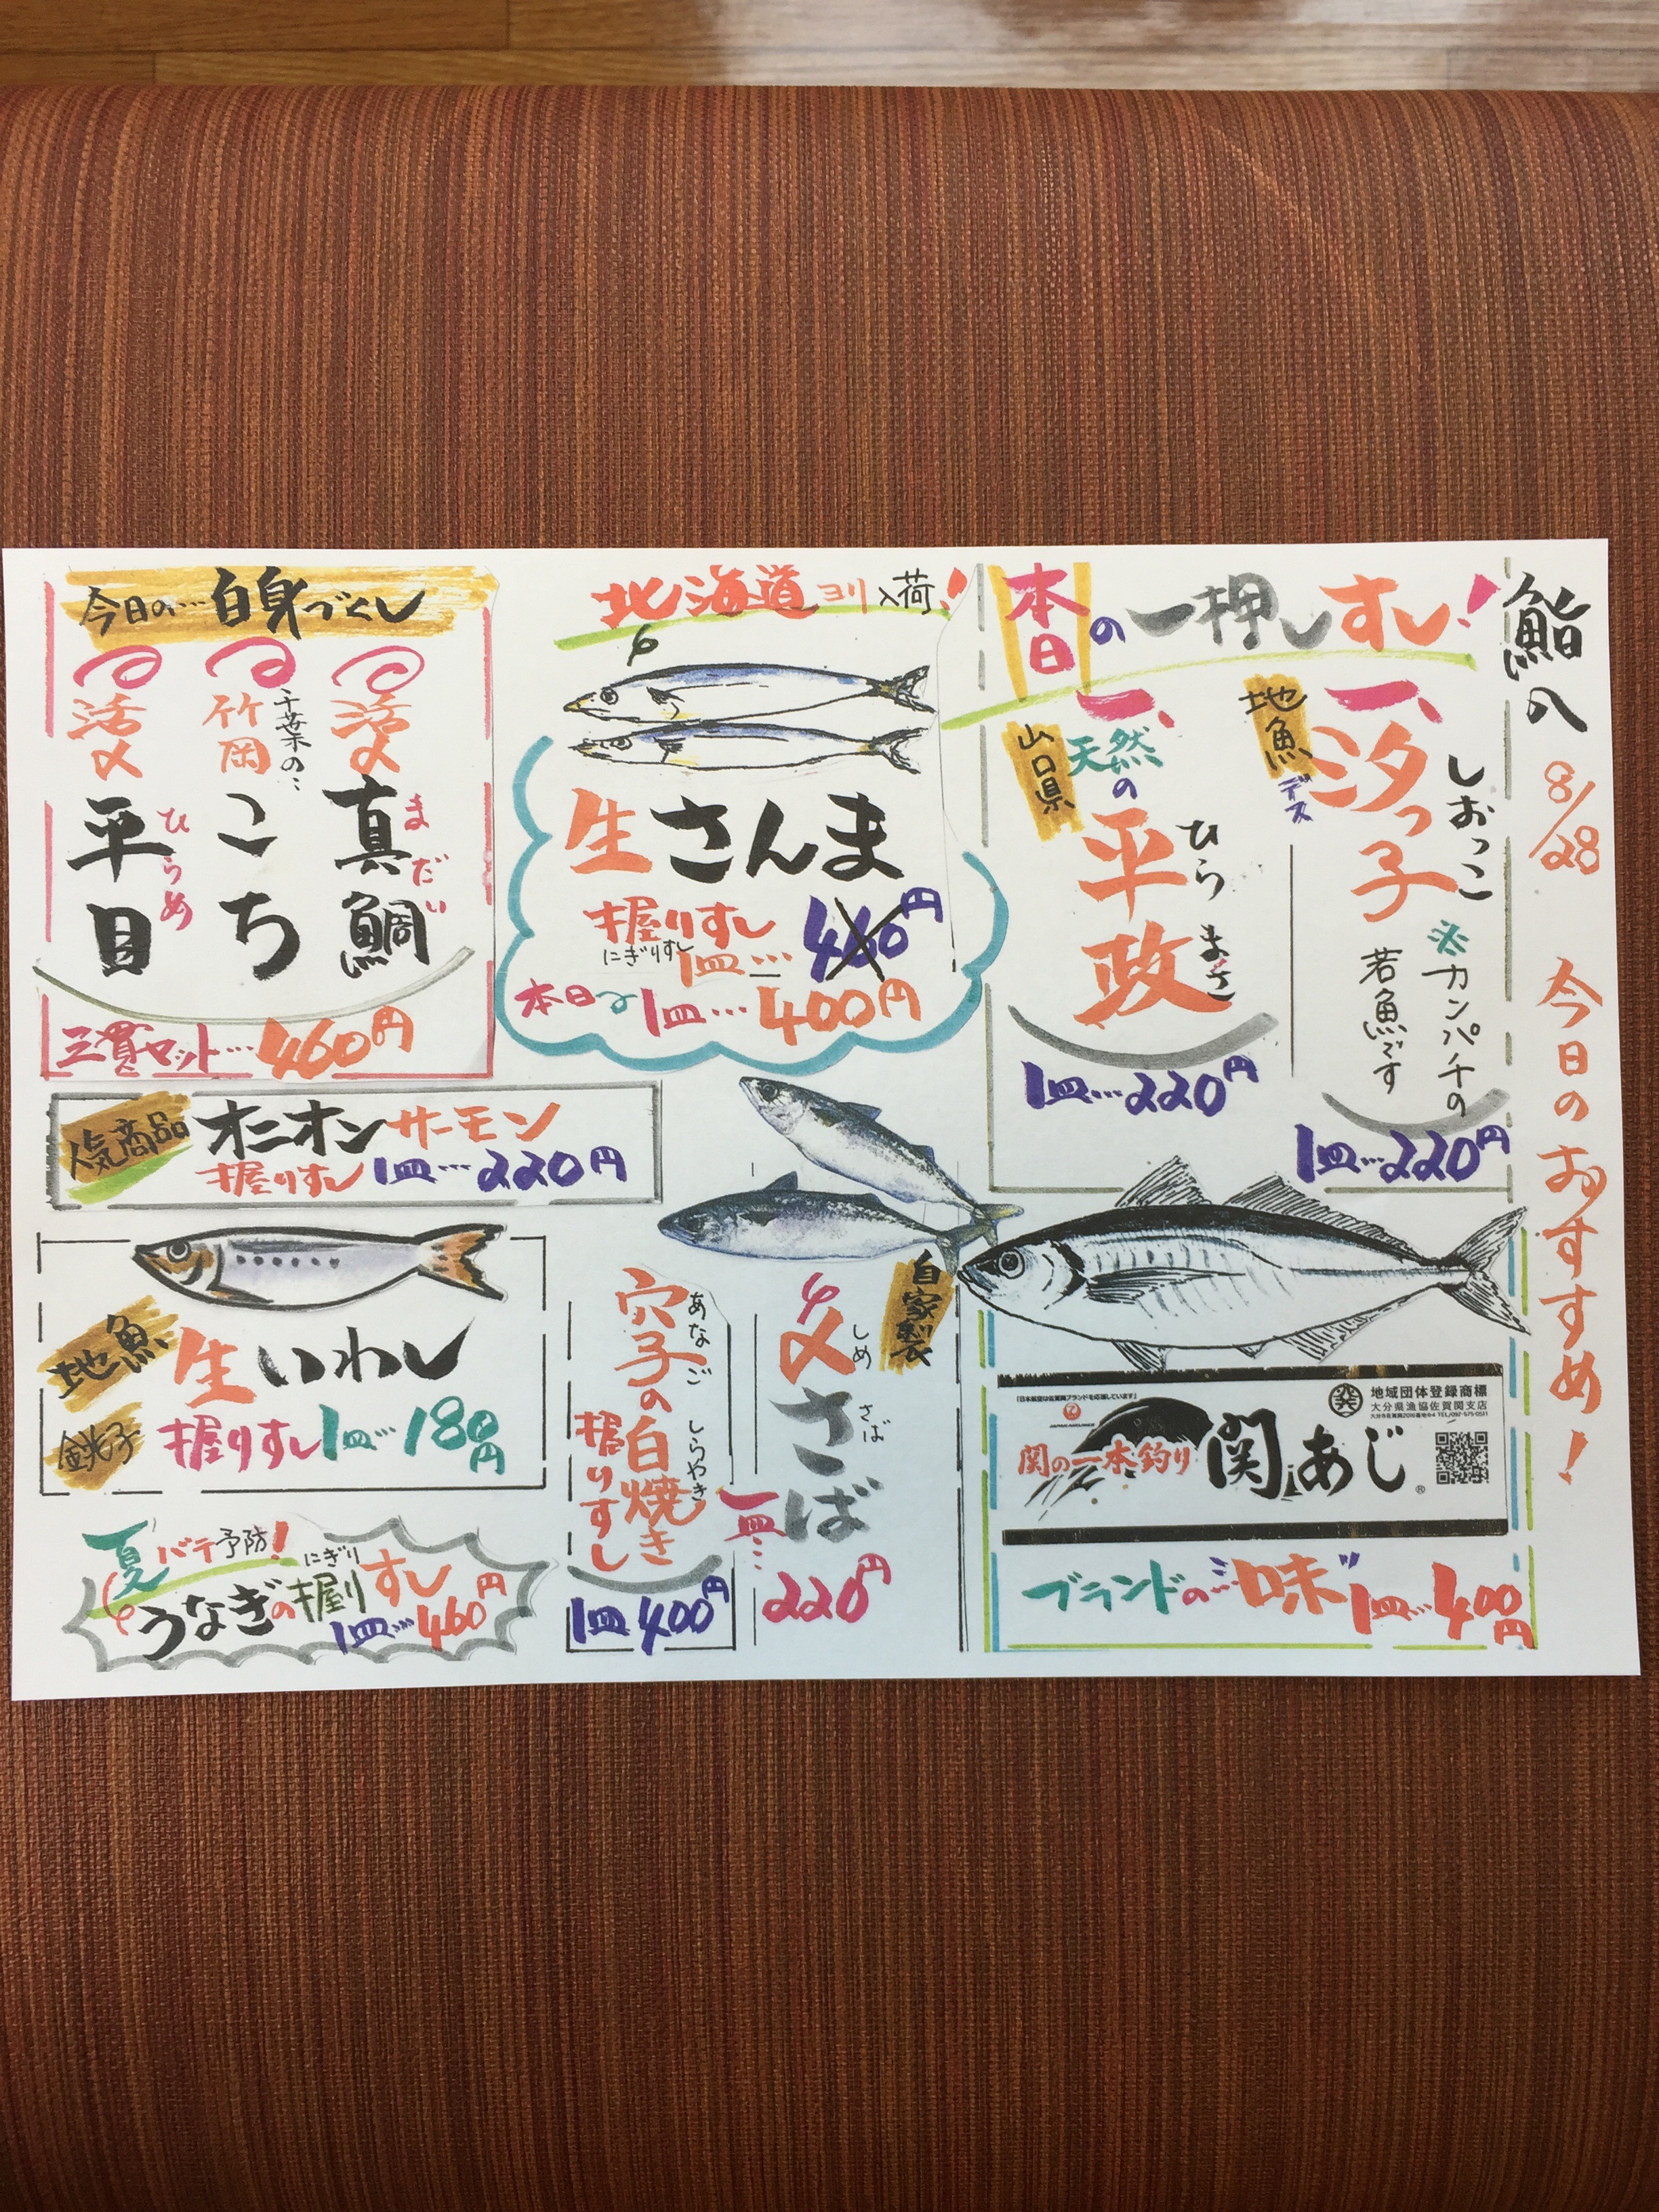 鮨の
8/28
今日のおすすめ!
本日の一押しすし!
一、汐っ子
しおっこ
地魚デス
※カンパチの
若魚です
1皿…220円
一、天然の平政
ひらまさ
山口県
1皿…220円
北海道ヨリ入荷!
生さんま
握りすし
にぎりすし
1皿…460円
本日は1皿…400円
今日の…白身づくし
活〆真鯛
まだい
千葉の…
竹岡こち
活〆平目
ひらめ
三貫セット…460円
人気商品
オニオンサーモン
握りすし1皿…220円
地魚
銚子
生いわし
握りすし1皿…180円
夏バテ予防!
うなぎの握りすし
にぎり
1皿…460円
穴子の白焼き
あなご しらやき
握りすし
1皿400円
自家製
〆さば
しめ さば
一皿…
220円
「日本航空は佐賀関ブランドを応援しています」
地域団体登録商標
大分県漁協佐賀関支店
関の一本釣り
関あじ®
ブランドの"味"1皿…400円